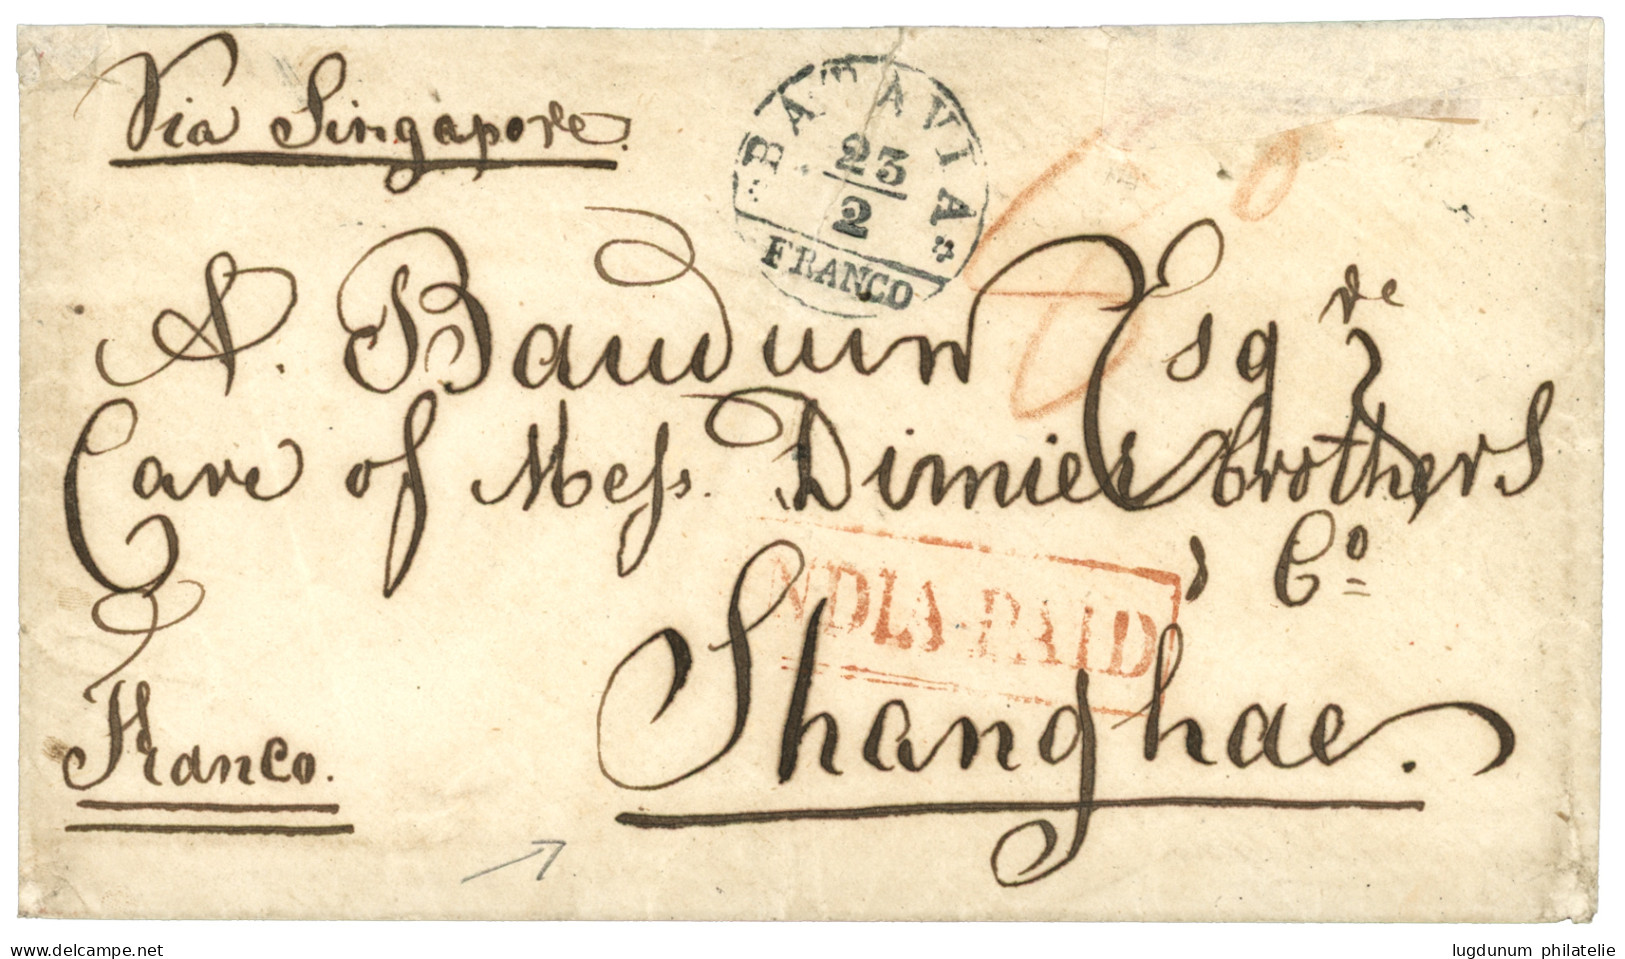 Via Singapore.
BATAVIA
23
2
FRANCO
A. Bauduin Esqre
Care of Mess. Dimier brothers
& Co
NDIA-PAID
Shanghae.
Franco.
www.delcampe.net
lugdunum philatelie